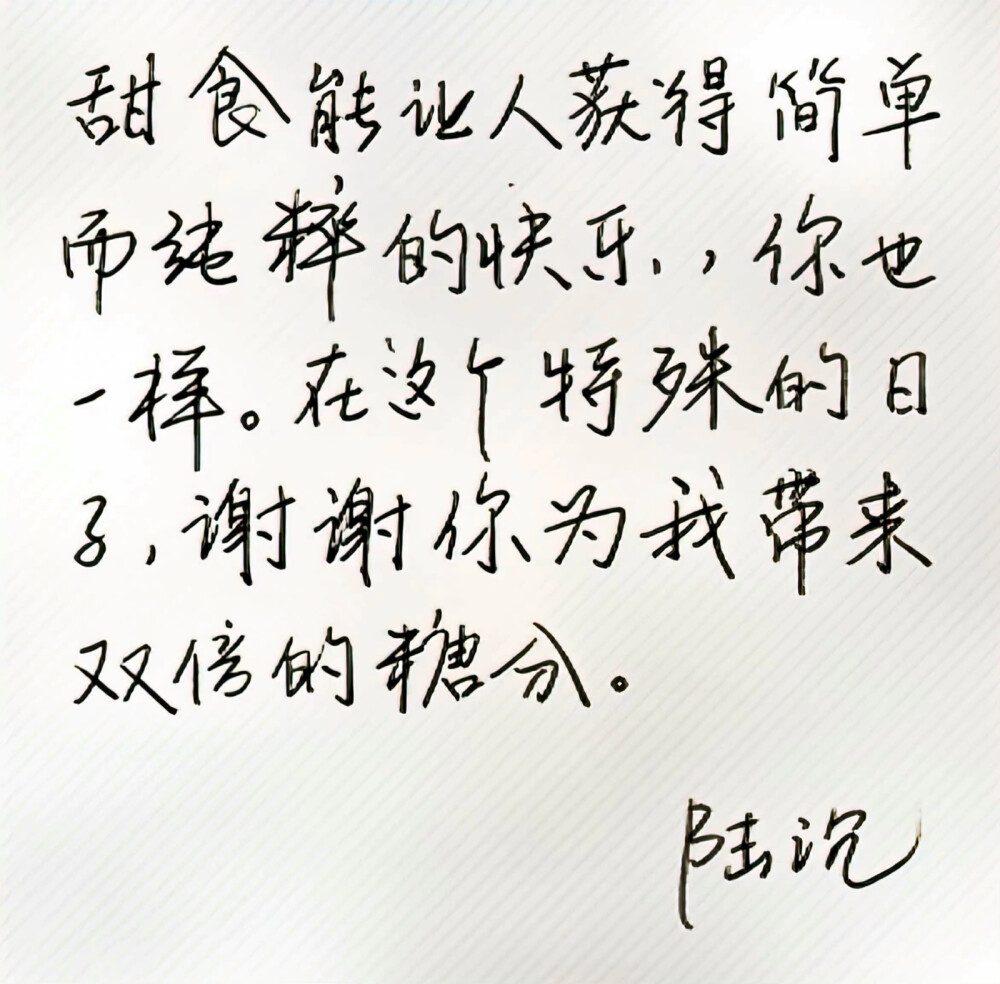 甜食能让人获得简单
而纯粹的快乐，你也
一样。在这个特殊的日
子，谢谢你为我带来
双倍的糖分。
陆沉